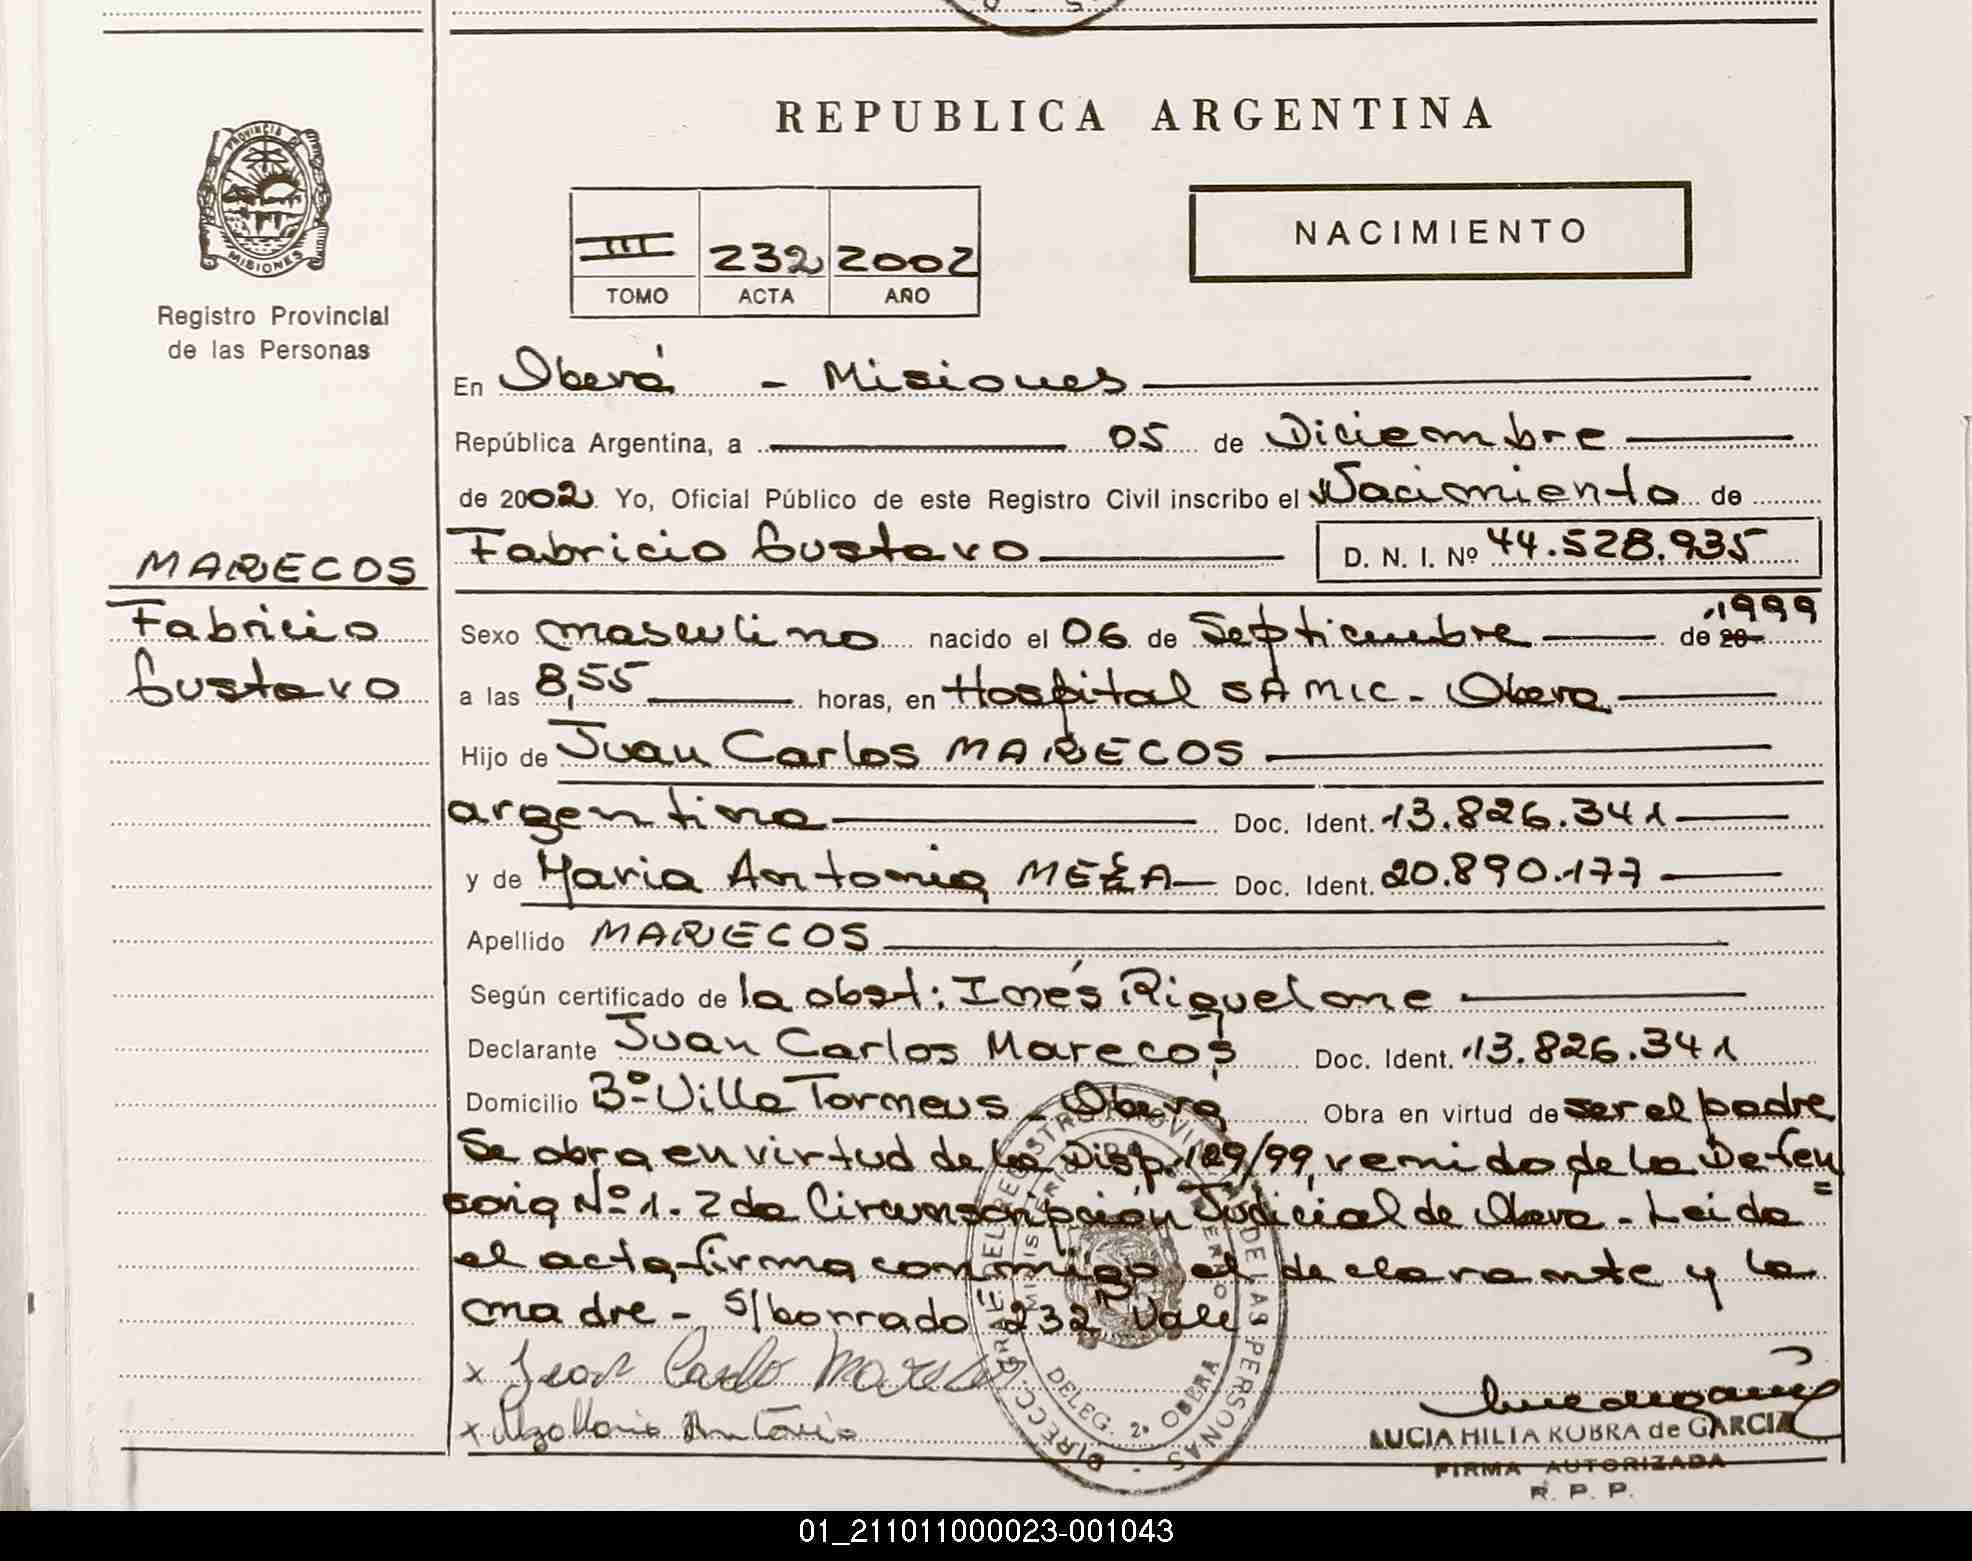 REPUBLICA ARGENTINA
PROVINCIA DE MISIONES
Registro Provincial
de las Personas
III 232 2002
TOMO ACTA AÑO
NACIMIENTO
En Oberá - Misiones
República Argentina, a 05 de Diciembre
de 2002. Yo, Oficial Público de este Registro Civil inscribo el Nacimiento de
Fabricio Gustavo D. N. I. Nº 44.528.935
MARECOS
Fabricio
Gustavo
Sexo masculino nacido el 06 de Septiembre de 20 1999
a las 8,55 horas, en Hospital SAMIC - Obera
Hijo de Juan Carlos MARECOS
argentina Doc. Ident. 13.826.341
y de Maria Antonia Doc. Ident. 20.890.177
Apellido MARECOS
Según certificado de la obst: Inés Riquelme
Declarante Juan Carlos Marecos Doc. Ident. 13.826.341
Domicilio Bº Villa Torneus - Obera Obra en virtud de ser el padre
Se obra en virtud de la Disp. 129/99, remido de la Defen
soria Nº 1. 2da Circunscripción Judicial de Obera - Leida
el acta firma conmigo el declarante y la
madre - s/borrado "232" Vale
x Juan Carlo Marecos
x Maria Antonia
DIRECC. GRAL. DEL REGISTRO PROVINCIAL DE LAS PERSONAS
DELEG. 2ª OBERA
LUCIA HILIA KUBRA de GARCIA
FIRMA AUTORIZADA
R. P. P.
01_211011000023-001043